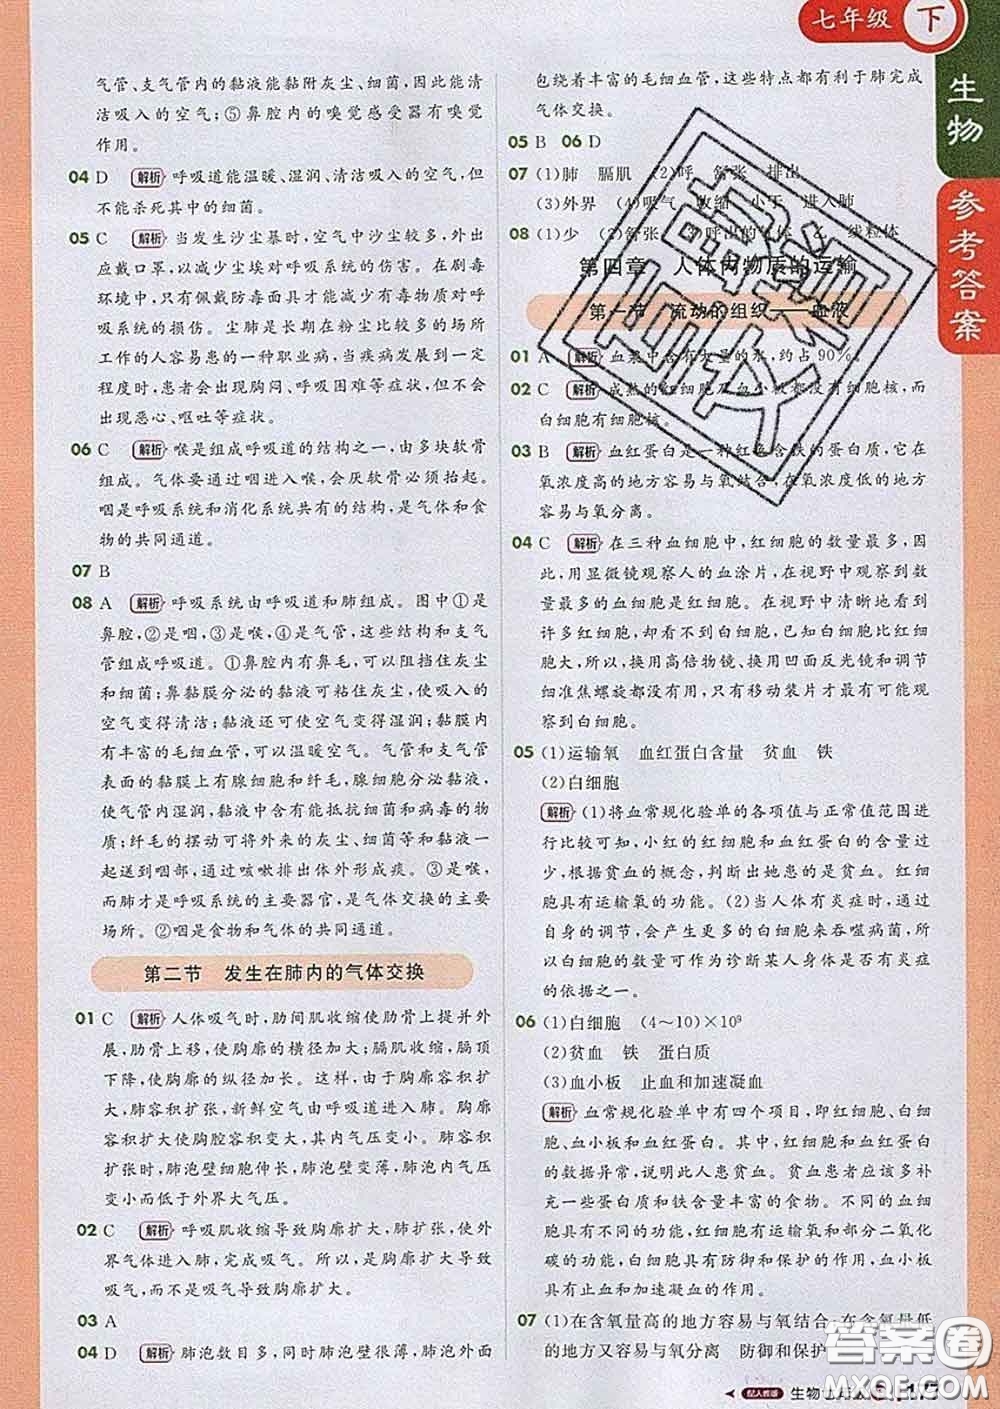 七年级 下
生物
参考答案
气管、支气管内的黏液能黏附灰尘、细菌,因此能清
洁吸入的空气;⑤鼻腔内的嗅觉感受器有嗅觉
作用。
04 D 解析 呼吸道能温暖、湿润、清洁吸入的空气,但
不能杀死其中的细菌。
05 C 解析 当发生沙尘暴时,空气中沙尘较多,外出
应戴口罩,以减少尘埃对呼吸系统的伤害。在剧毒
环境中,只有佩戴防毒面具才能减少有毒物质对呼吸
系统的损伤。尘肺是长期在粉尘比较多的场所
工作的人容易患的一种职业病,当疾病发展到一定
程度时,患者会出现胸闷、呼吸困难等症状,甚至会
出现恶心、呕吐等症状。
06 C 解析 喉是组成呼吸道的结构之一,由多块软骨
组成。气体要通过咽进入喉,会厌软骨必须抬起。
咽是呼吸系统和消化系统共有的结构,是气体和食
物的共同通道。
07 B
08 A 解析 呼吸系统由呼吸道和肺组成。图中①是
鼻腔,②是咽,③是喉,④是气管,这些结构和支气
管组成呼吸道。①鼻腔内有鼻毛,可以阻挡住灰尘
和细菌;鼻黏膜分泌的黏液可粘住灰尘,使吸入的
空气变得清洁;黏液还可使空气变得湿润;黏膜内
有丰富的毛细血管,可以温暖空气。气管和支气管
表面的黏膜上有腺细胞和纤毛,腺细胞分泌黏液,
使气管内湿润,黏液中含有能抵抗细菌和病毒的物
质;纤毛的摆动可将外来的灰尘、细菌等和黏液一
起送到咽部,通过咳嗽排出体外形成痰。③是喉,
而肺才是呼吸系统的主要器官,是气体交换的主要
场所。②咽是食物和气体的共同通道。
第二节 发生在肺内的气体交换
01 C 解析 人体吸气时,肋间肌收缩使肋骨上提并外
展,肋骨上移,使胸廓的横径加大;膈肌收缩,膈顶
下降,使胸廓的纵径加大。这时,由于胸廓容积扩
大,肺容积扩张,新鲜空气由呼吸道进入肺。胸廓
容积扩大使胸腔容积变大,其内气压变小。肺容积
扩张时,肺泡壁细胞伸长,肺泡壁变薄,肺泡内气压
变小而低于外界大气压。
02 C 解析 呼吸肌收缩导致胸廓扩大,肺扩张,使外
界气体进入肺,完成吸气。所以,是胸廓扩大导致吸
气,而不是吸气导致胸廓扩大。
03 A
04 D 解析 肺泡数目多,同时肺泡壁很薄,肺泡外面
包绕着丰富的毛细血管,这些特点都有利于肺完成
气体交换。
05 B 06 D
07 (1)肺 膈肌 (2)呼 舒张 排出
(3)外界 (4)吸气 收缩 小于 进入肺
08 (1)少 (2)舒张 (3)呼出的气体 乙 线粒体
第四章 人体内物质的运输
第一节 流动的组织——血液
01 A 解析 血浆中含有大量的水,约占90%。
02 C 解析 成熟的红细胞及血小板都没有细胞核,而
白细胞有细胞核。
03 B 解析 血红蛋白是一种红色含铁的蛋白质,它在
氧浓度高的地方容易与氧结合,在氧浓度低的地方
容易与氧分离。
04 C 解析 在三种血细胞中,红细胞的数量最多,因
此,用显微镜观察人的血涂片,在视野中观察到数量
最多的血细胞是红细胞。在视野中清晰地看到
许多红细胞,却看不到白细胞,已知白细胞比红细胞
大,所以,换用高倍物镜、换用凹面反光镜和调节
细准焦螺旋都没有用,只有移动装片才最有可能观
察到白细胞。
05 (1)运输氧 血红蛋白含量 贫血 铁
(2)白细胞
解析 (1)将血常规化验单的各项值与正常值范围
进行比较可知,小红的红细胞和血红蛋白的含量过
少,根据贫血的概念,判断出她患的是贫血。红细胞
具有运输氧的功能。(2)当人体有炎症时,通过
自身的调节,会产生更多的白细胞来吞噬病菌,所以
白细胞的数量可作为诊断某人身体是否有炎症
的依据之一。
06 (1)白细胞 (4～10)×10⁹
(2)贫血 铁 蛋白质
(3)血小板 止血和加速凝血
解析 血常规化验单中有四个项目,即红细胞、白细
胞、血小板和血红蛋白。其中,红细胞和血红蛋白
的数据异常,说明此人患贫血。贫血患者应该多补
充一些蛋白质和铁含量丰富的食物。不同的血细胞
具有不同的功能,红细胞有运输氧和部分二氧化
碳的功能,白细胞具有防御和保护的作用,血小板
具有止血和加速凝血的作用。
07 (1)在含氧量高的地方容易与氧结合,在含氧量低
的地方又容易与氧分离 防御和保护
配人教版 生物 177
答案圈
MXQE.COM